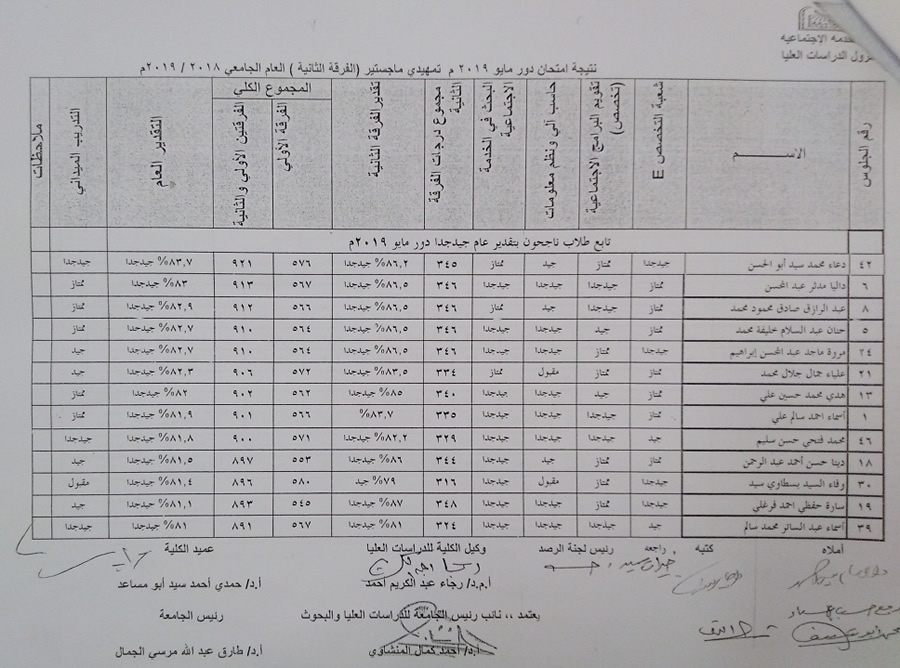 الخدمه الاجتماعيه
الدراسات العليا
نتيجة امتحان دور مايو ٢٠١٩ م تمهيدي ماجستير (الفرقة الثانية ) العام الجامعي ٢٠١٨ / ٢٠١٩م
رقم الجلوس الاســـــم شعبة التخصص E تقويم البرامج الاجتماعية (تخصص) حاسب آلي ونظم معلومات البحث في الخدمة الاجتماعية مجموع درجات الفرقة الثانية تقدير الفرقة الثانية المجموع الكلي الفرقة الأولي الفرقتين الأولي والثانية التقدير العام التدريب الميداني ملاحظات
تابع طلاب ناجحون بتقدير عام جيدجدا دور مايو ٢٠١٩م
٤٢ دعاء محمد سيد أبو الحسن جيدجدا ممتاز جيد ممتاز ٣٤٥ ٨٦,٢% جيدجدا ٥٧٦ ٩٢١ ٨٣,٧% جيدجدا جيدجدا
٦ داليا مدثر عبد المحسن ممتاز جيدجدا جيدجدا جيدجدا ٣٤٦ ٨٦,٥% جيدجدا ٥٦٧ ٩١٣ ٨٣% جيدجدا ممتاز
٨ عبد الرازق صادق محمود محمد ممتاز جيدجدا جيد ممتاز ٣٤٦ ٨٦,٥% جيدجدا ٥٦٦ ٩١٢ ٨٢,٩% جيدجدا ممتاز
٥ حنان عبد السلام خليفة محمد ممتاز جيد جيدجدا جيدجدا ٣٤٦ ٨٦,٥% جيدجدا ٥٦٤ ٩١٠ ٨٢,٧% جيدجدا ممتاز
٢٤ مروة ماجد عبد المحسن إبراهيم جيدجدا ممتاز جيدجدا جيدجدا ٣٤٦ ٨٦,٥% جيدجدا ٥٦٤ ٩١٠ ٨٢,٧% جيدجدا جيد
٢١ علياء جمال جلال محمد ممتاز ممتاز مقبول ممتاز ٣٣٤ ٨٣,٥% جيدجدا ٥٧٢ ٩٠٦ ٨٢,٣% جيدجدا جيد
١٣ هدي محمد حسين علي ممتاز جيد جيدجدا جيدجدا ٣٤٠ ٨٥% جيدجدا ٥٦٢ ٩٠٢ ٨٢% جيدجدا ممتاز
١ أسماء احمد سالم علي ممتاز جيدجدا جيدجدا جيدجدا ٣٣٥ ٨٣,٧% ٥٦٦ ٩٠١ ٨١,٩% جيدجدا ممتاز
٤٦ محمد فتحي حسن سليم جيد ممتاز جيدجدا جيدجدا ٣٢٩ ٨٢,٢% جيدجدا ٥٧١ ٩٠٠ ٨١,٨% جيدجدا جيدجدا
١٨ دينا حسن أحمد عبد الرحمن ممتاز ممتاز جيد جيدجدا ٣٤٤ ٨٦% جيدجدا ٥٥٣ ٨٩٧ ٨١,٥% جيدجدا جيد
٣٠ وفاء السيد بسطاوي سيد جيدجدا ممتاز مقبول جيدجدا ٣١٦ ٧٩% جيد ٥٨٠ ٨٩٦ ٨١,٤% جيدجدا مقبول
١٩ سارة حفظي احمد فرغلي جيدجدا ممتاز جيدجدا جيدجدا ٣٤٨ ٨٧% جيدجدا ٥٤٥ ٨٩٣ ٨١,١% جيدجدا جيد
٣٩ أسماء عبد الساتر محمد سالم جيد جيدجدا جيدجدا جيدجدا ٣٢٤ ٨١% جيدجدا ٥٦٧ ٨٩١ ٨١% جيدجدا جيدجدا
أملاه كتبه راجعه رئيس لجنة الرصد وكيل الكلية للدراسات العليا عميد الكلية
أ.م.د/ رجاء عبد الكريم أحمد أ.د/ حمدي أحمد سيد أبو مساعد
يعتمد ،، نائب رئيس الجامعة للدراسات العليا والبحوث رئيس الجامعة
أ.د/ أحمد كمال المنشاوي أ.د/ طارق عبد الله مرسي الجمال